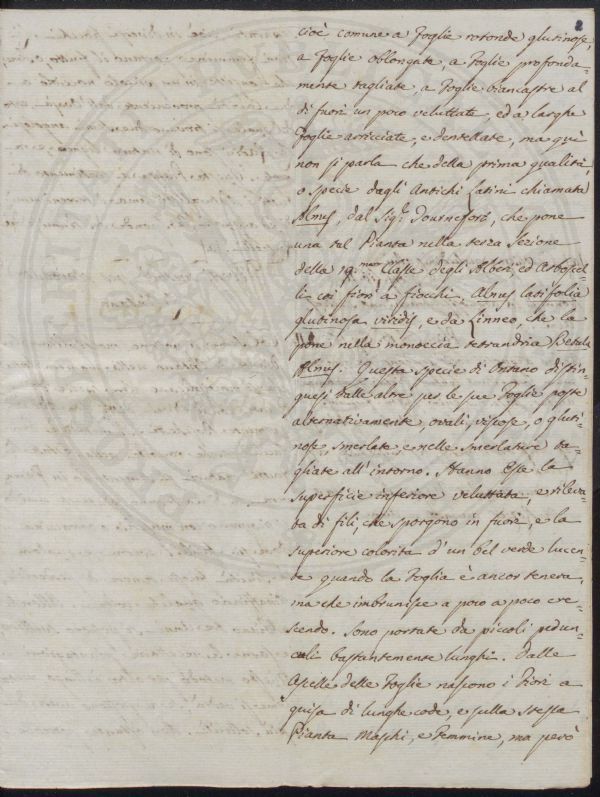 2
cioè comune a foglie rotonde glutinose,
a foglie oblongate, a foglie profonda-
mente tagliate, a foglie biancastre al
di fuori un poco vellutate, ed a larghe
foglie arricciate, e dentellate, ma quì
non si parla che della prima qualità,
o specie dagli Antichi Latini chiamata
Alnus, dal Sig.r Tournefort, che pone
una tal Pianta nella terza Sezione
della 19.ma Classe degli Alberi, ed Arboscel-
li coi fiori a fiocchi, Alnus latifolia
glutinosa viridis, e da Linneo, che la
pone nella monoecia tetrandria Betula
Alnus. Questa specie di Ontano distin-
guesi dalle altre per le sue foglie poste
alternativamente, ovali, viscose, o gluti-
nose, smerlate, e nelle smerlature ta-
gliate all'intorno. Hanno esse la
superficie inferiore vellutata, e rileva-
ta di fili, che sporgono in fuori, e la
superiore colorita d'un bel verde lucen-
te quando la foglia è ancor tenera,
ma che imbrunisce a poco a poco cre-
scendo. Sono portate da piccoli pedun-
culi bastantemente lunghi. Dalle
Ascelle delle foglie nascono i fiori a
guisa di lunghe code, e sulla stessa
Pianta Maschi, e Femmine, ma però